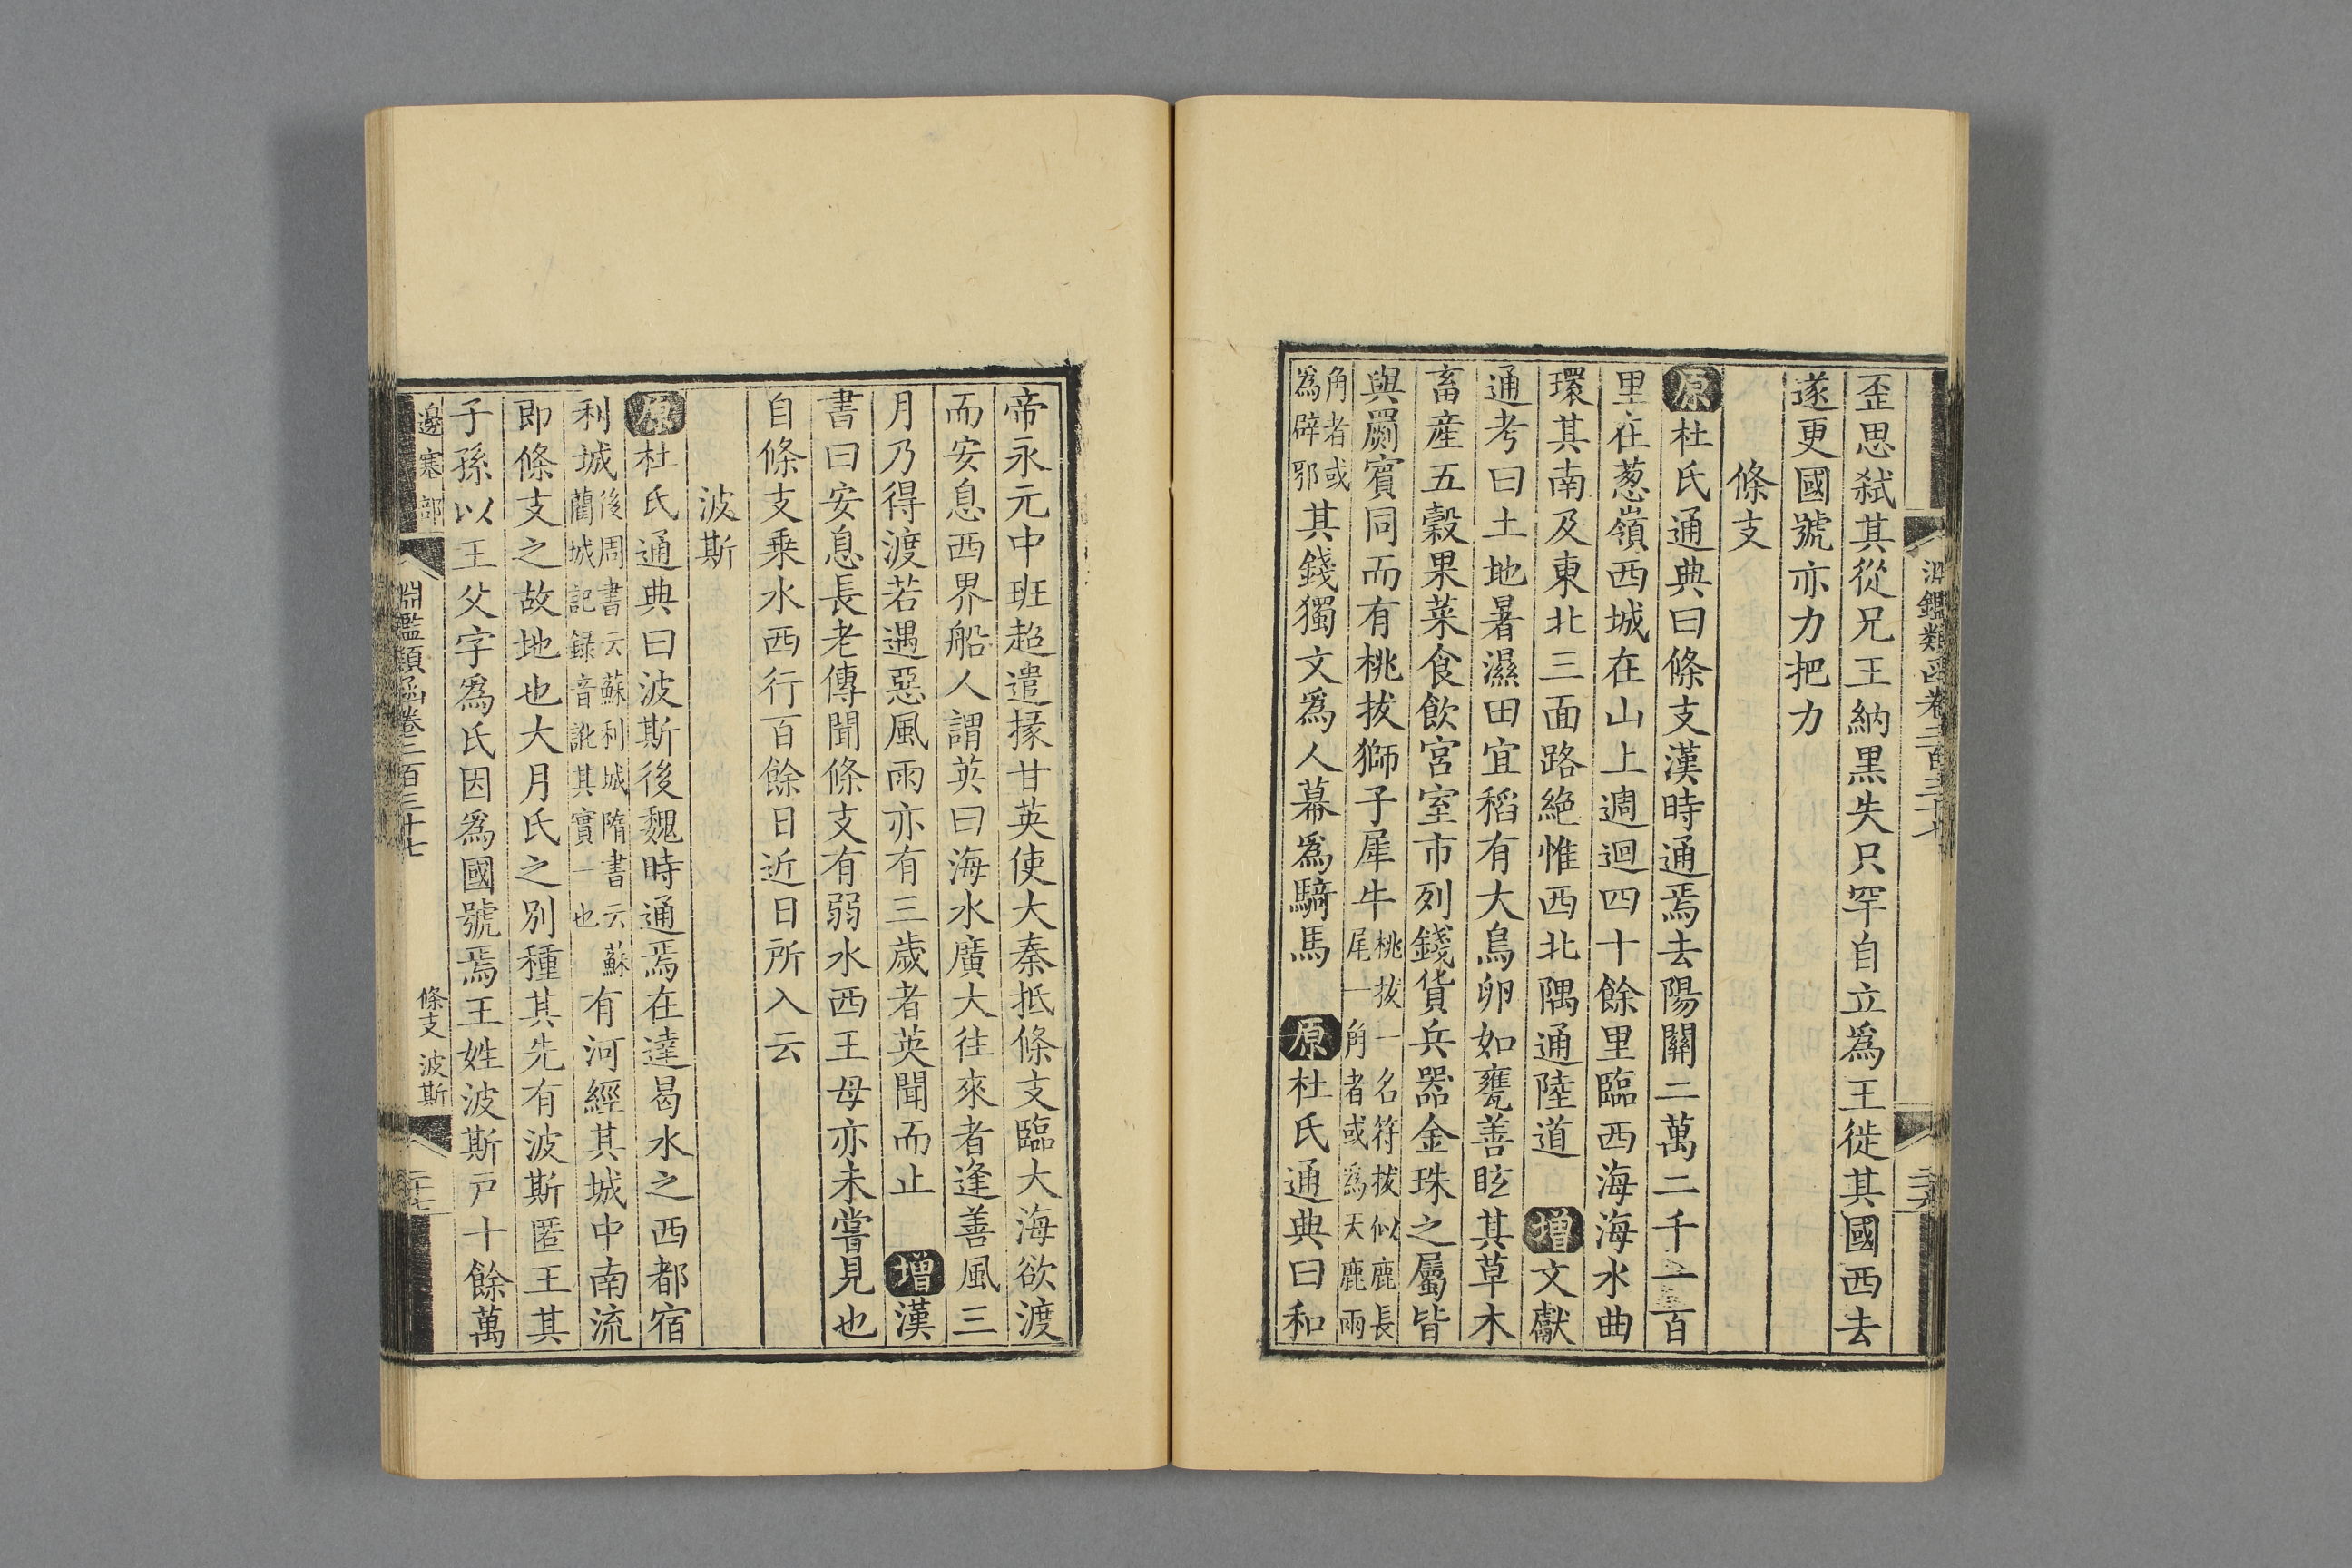 歪思弑其從兄王納黒失只罕自立爲王徙其國西去
遂更國號亦力把力
條支
原杜氏通典曰條支漢時通焉去陽關二萬二千一百
里在葱嶺西城在山上週迴四十餘里臨西海海水曲
環其南及東北三面路絶惟西北隅通陸道 增文獻
通考曰土地暑濕田宜稻有大鳥卵如甕善眩其草木
畜産五穀果菜食飲宮室市列錢貨兵器金珠之屬皆
與罽賓同而有桃拔獅子犀牛桃拔一名符拔似鹿長尾一角者或爲天鹿兩
角者或爲辟邪其錢獨文爲人幕爲騎馬 原杜氏通典曰和
帝永元中班超遣掾甘英使大秦抵條支臨大海欲渡
而安息西界船人謂英曰海水廣大往來者逢善風三
月乃得渡若遇惡風雨亦有三歲者英聞而止 增漢
書曰安息長老傳聞條支有弱水西王母亦未嘗見也
自條支乗水西行百餘日近日所入云
波斯
原杜氏通典曰波斯後魏時通焉在達曷水之西都宿
利城後周書云蘇利城隋書云蘇藺城記録音訛其實一也有河經其城中南流
即條支之故地也大月氏之別種其先有波斯匿王其
子孫以王父字爲氏因爲國號焉王姓波斯戸十餘萬
邊塞部
淵鑑類函卷二百三十七
條支 波斯
二十七